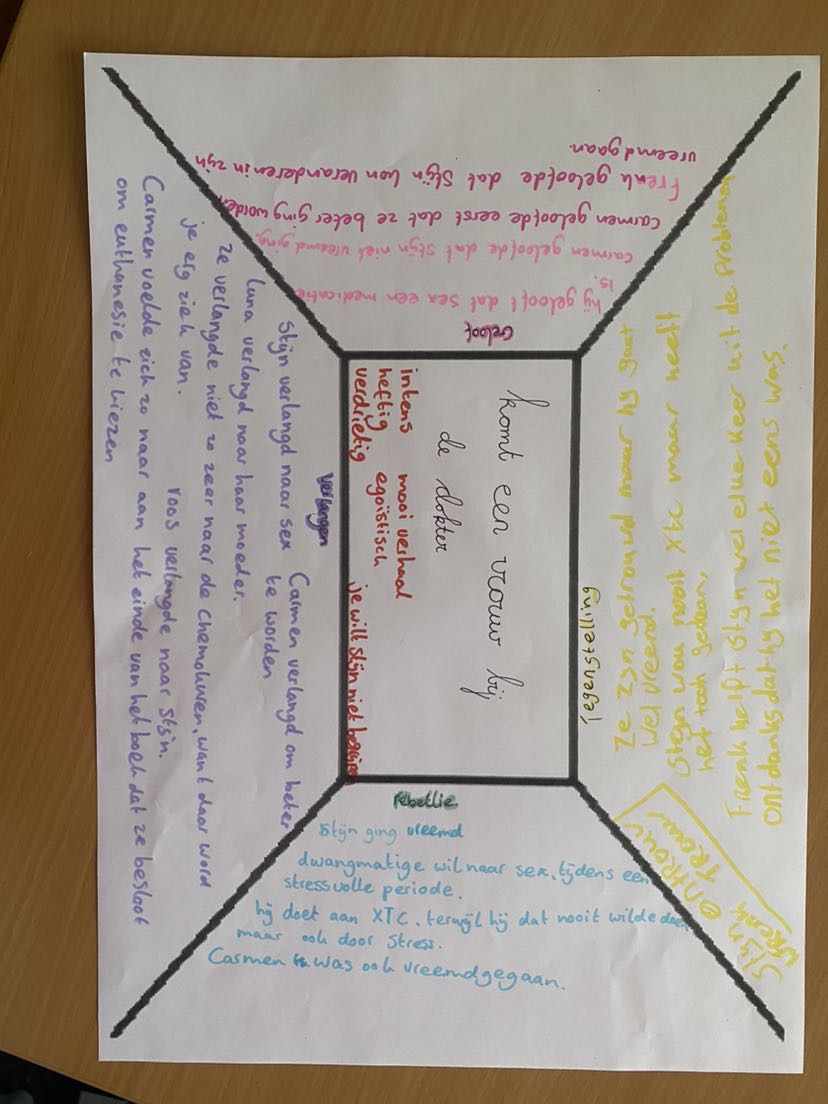 komt een vrouw bij
de dokter
intens mooi verhaal
heftig egoïstisch
verdrietig je will stijn niet begrijpen
Geloof
hij gelooft dat sex een medicatie
is.
carmen geloofde dat stijn niet vreemd ging.
carmen geloofde eerst dat ze beter ging worden
Frenk geloofde dat Stijn kon veranderen in zijn
vreemdgaan.
tegenstelling
Ze zijn getrouwd maar hij gaat
wel vreemd.
Stijn wou nooit xtc maar heeft
het toch gedaan.
Frenk helpt stijn wel elke keer uit de problemen
ontdanks dat hij het niet eens was.
Stijn ontrouw
Frenk trouw
rebellie
Stijn ging vreemd
dwangmatige wil naar sex, tijdens een
stressvolle periode.
hij doet aan XTC, terwijl hij dat nooit wilde doen
maar ook door stress.
Carmen was ook vreemdgegaan.
verlangen
Stijn verlangd naar sex Carmen verlangd om beter
te worden
Luna verlangd naar haar moeder.
ze verlangde niet zo zeer naar de chemokuren, want daar word
je erg ziek van.
roos verlangde naar stijn.
Carmen voelde zich zo naar aan het einde van het boek dat ze besloot
om euthanesie te kiezen